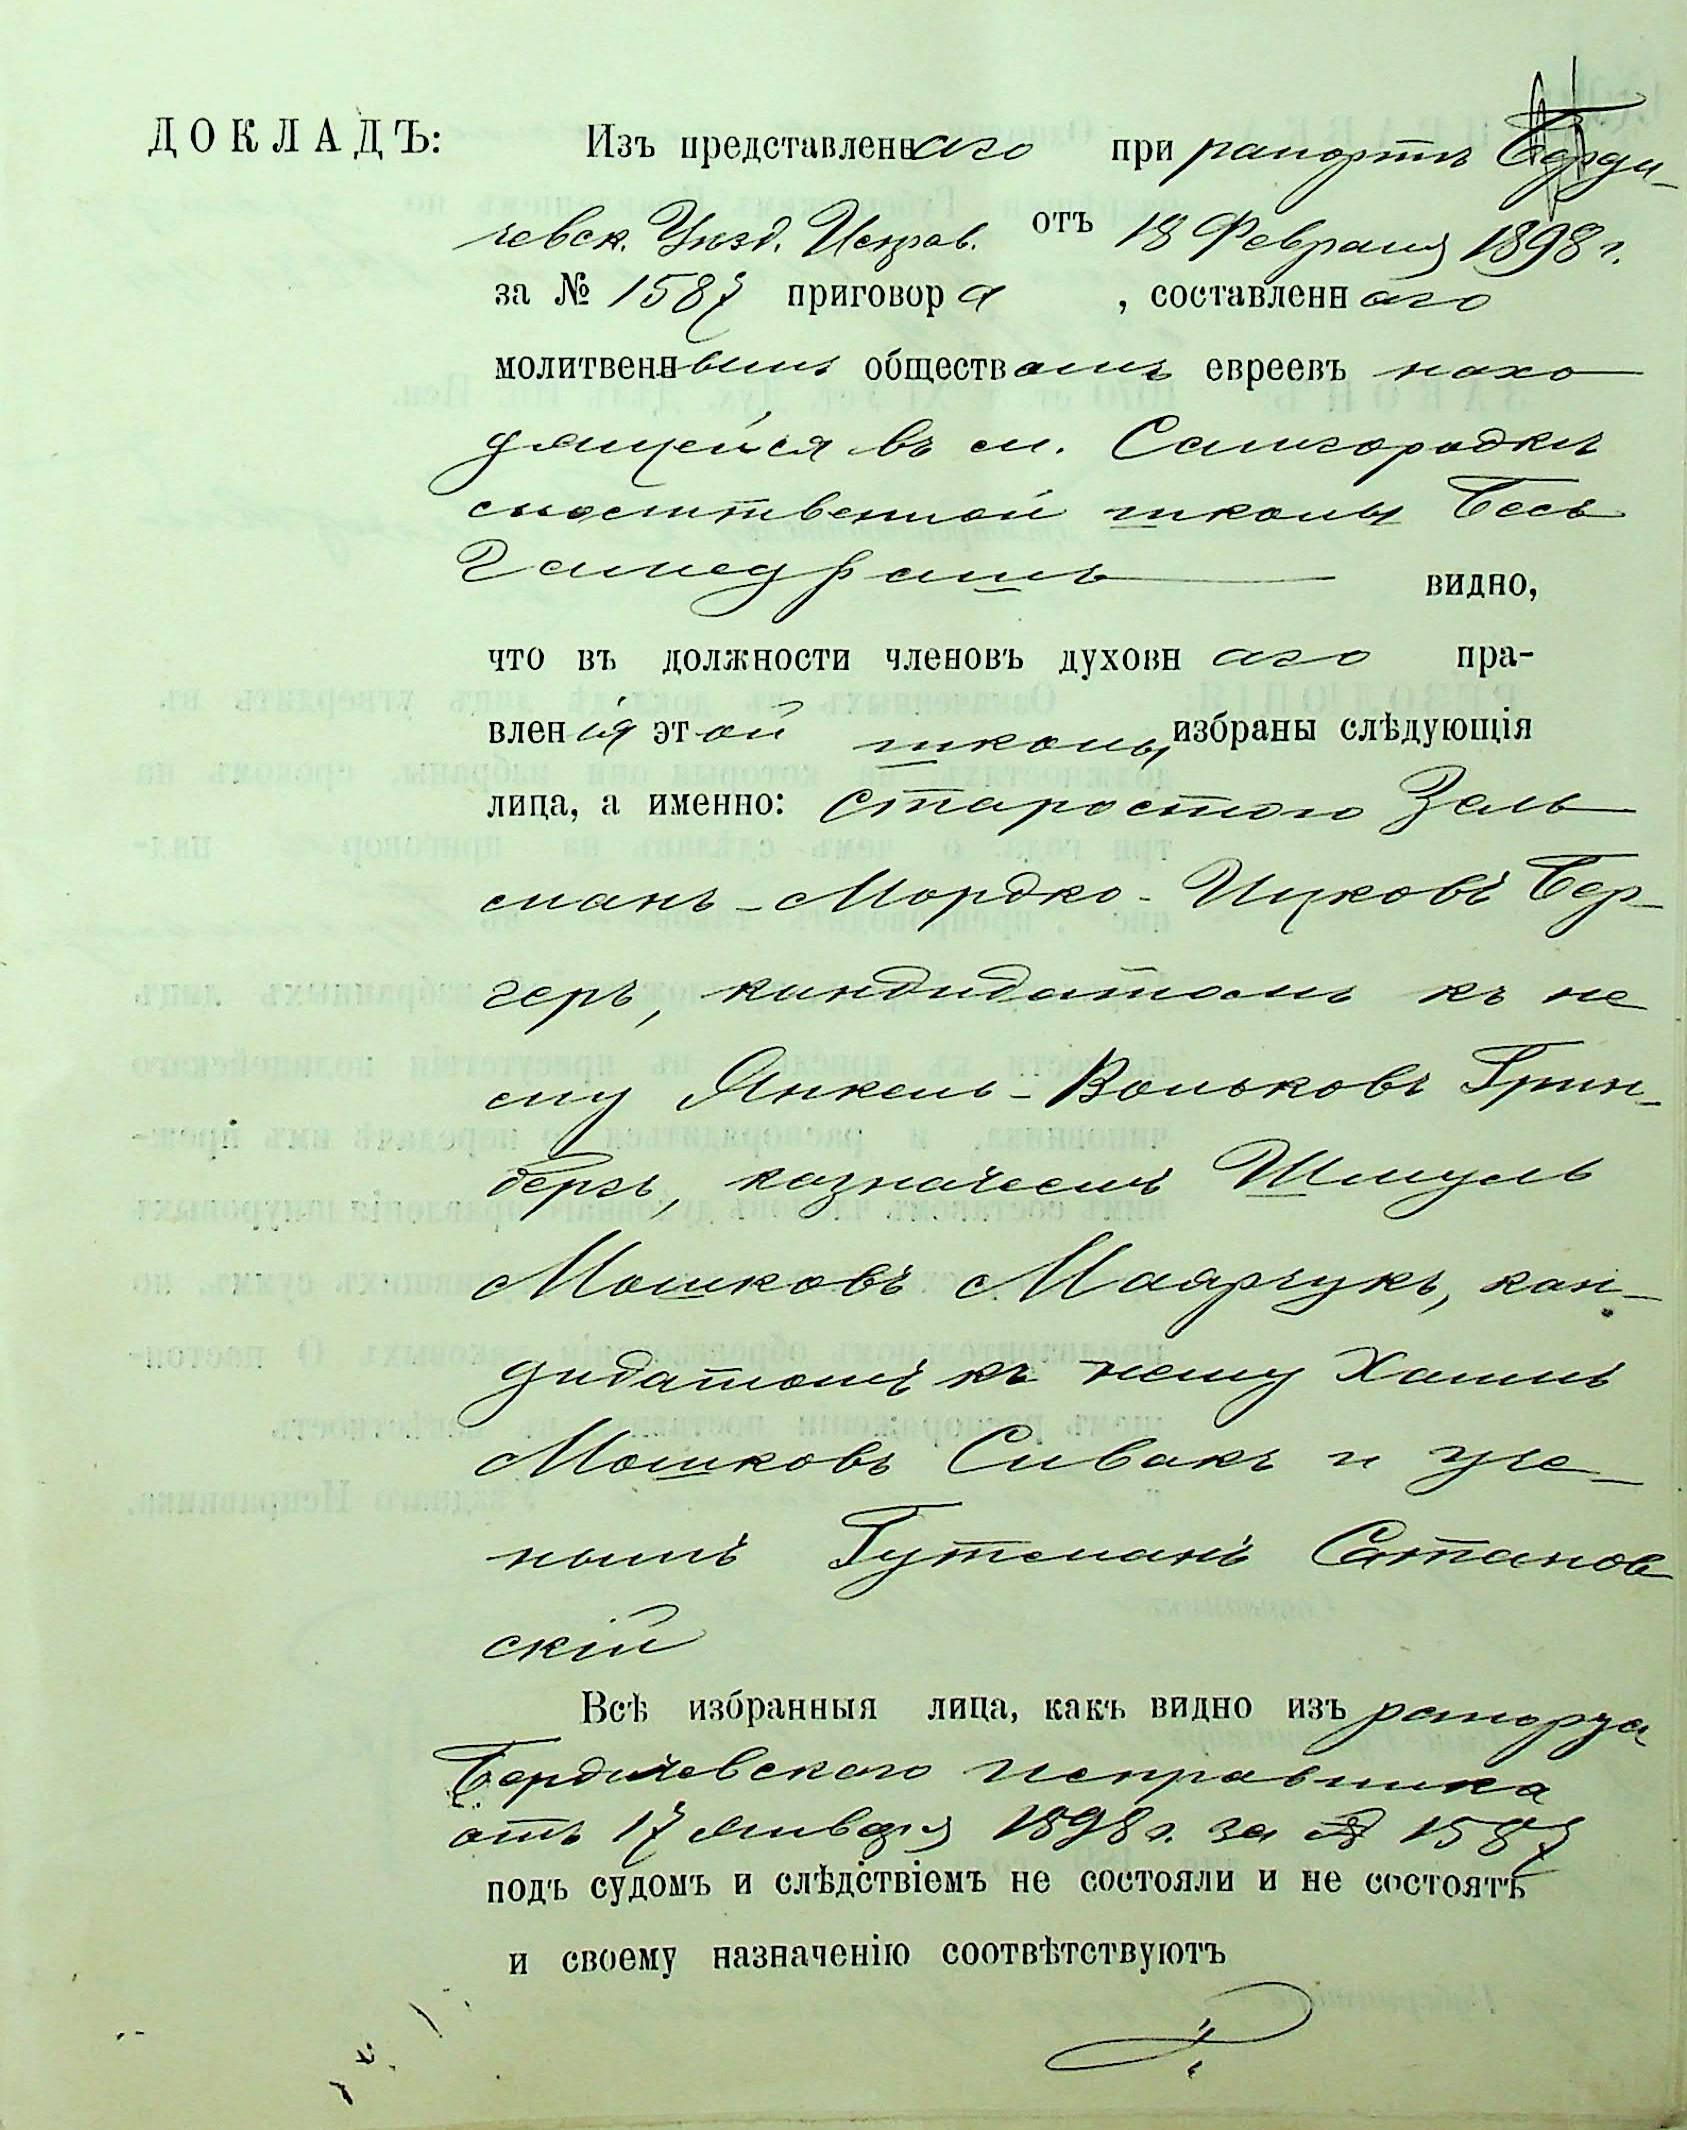 ДОКЛАДЪ: Изъ представленнаго при рапортѣ Берди-
чевск. Уѣзд. Исправ. отъ 18 Февраля 1898 г.
за № 1587 приговора, составленнаго
молитвеннымъ обществомъ евреевъ нахо
дящейся въ м. Самгородкѣ
молитвенной школы Бесъ
Гамедрашъ видно,
что въ должности членовъ духовнаго пра-
вленія этой школы избраны слѣдующія
лица, а именно: Старостою Зель
манъ-Мордко-Ицковъ Бер-
геръ, кандидатомъ къ не
му Янкель-Вольковъ Грин-
бергъ, казначеемъ Шмуль
Мошковъ Маярчукъ, кан-
дидатомъ къ нему Хаимъ
Мошковъ Сивакъ и уче-
нымъ Гутманъ Сатанов
скій
Всѣ избранныя лица, какъ видно изъ рапорта
Бердичевского Исправника
отъ 17 Января 1898 г. за № 1587
подъ судомъ и слѣдствіемъ не состояли и не состоятъ
и своему назначенію соотвѣтствуютъ